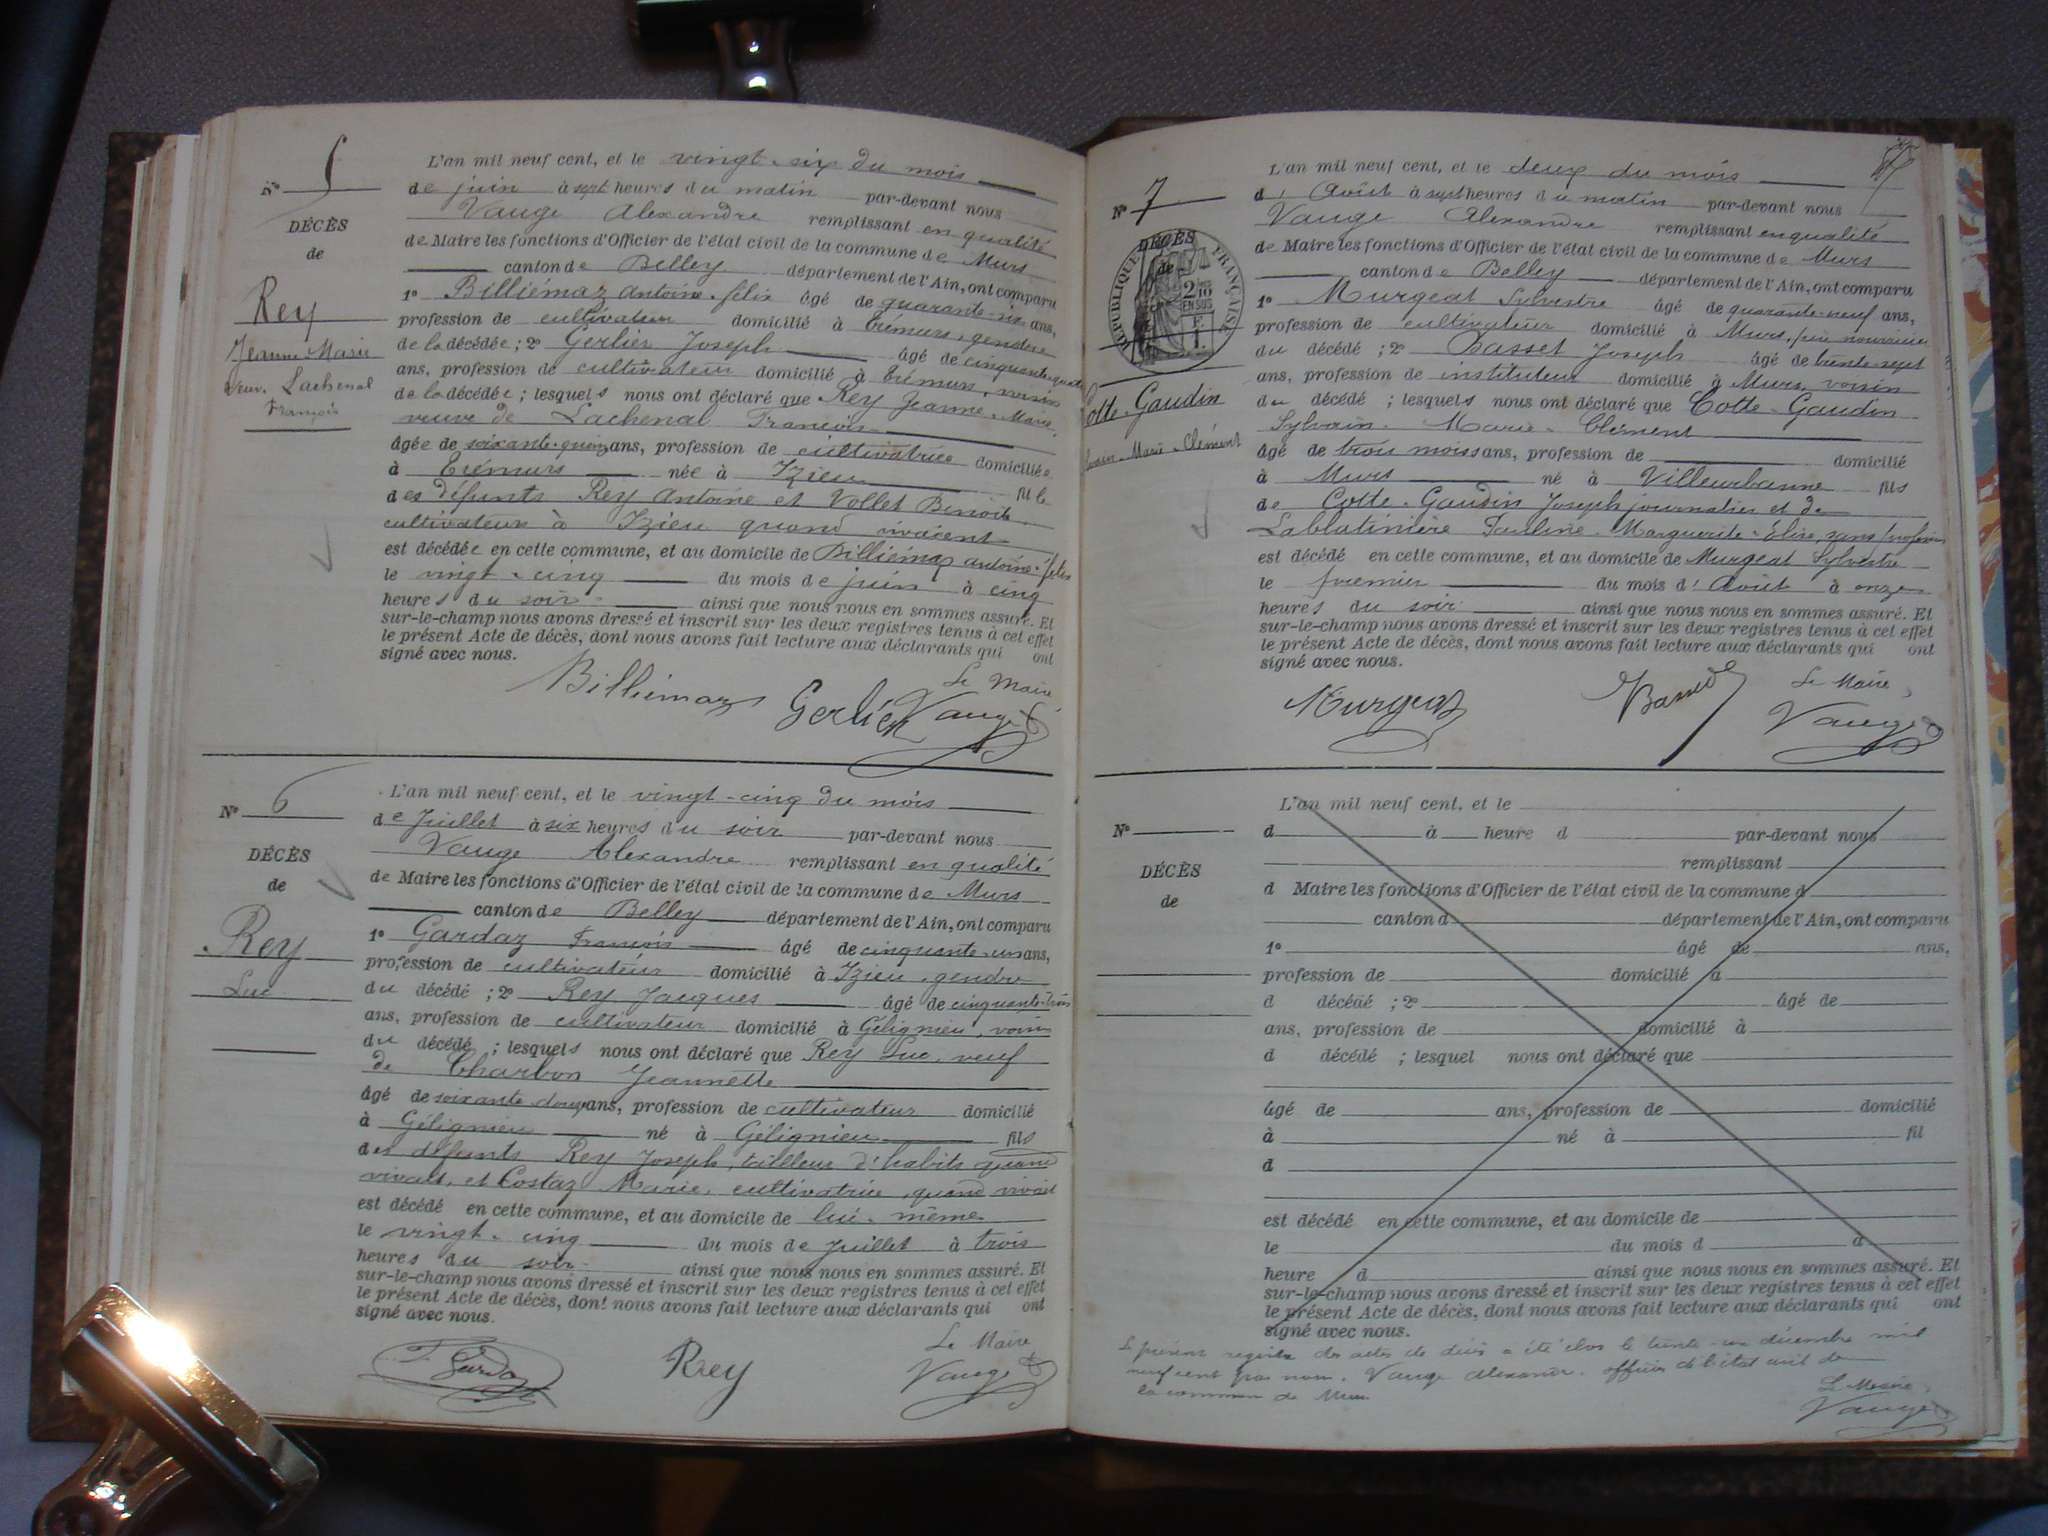 Nº 5
DÉCÈS
de
Rey
Jeanne Marie
veuv. Lachenal
François
L'an mil neuf cent, et le vingt-six du mois
de juin à sept heures du matin par-devant nous
Vauge Alexandre remplissant en qualité
de Maire les fonctions d'Officier de l'état civil de la commune de Murs
canton de Belley département de l'Ain, ont comparu
1º Billiémaz Antoine-félix âgé de quarante-six ans,
profession de cultivateur domicilié à Erémurs, gendre
de la décédée ; 2º Gerlier Joseph âgé de cinquante-quatre
ans, profession de cultivateur domicilié à Erémurs, voisin
de la décédée ; lesquels nous ont déclaré que Rey Jeanne-Marie,
veuve de Lachenal François
âgée de soixante-quinze ans, profession de cultivatrice domiciliée
à Erémurs née à Izieu fille
des défunts Rey Antoine et Vollet Benoite
cultivateurs à Izieu quand vivaient
est décédée en cette commune, et au domicile de Billiémaz Antoine-félix
le vingt-cinq du mois de juin à cinq
heures du soir ainsi que nous nous en sommes assuré. Et
sur-le-champ nous avons dressé et inscrit sur les deux registres tenus à cet effet
le présent Acte de décès, dont nous avons fait lecture aux déclarants qui ont
signé avec nous.
Le Maire
Billiémaz Gerlier Vauge
Nº 6
DÉCÈS
de
Rey
Luc
L'an mil neuf cent, et le vingt-cinq du mois
de Juillet à six heures du soir par-devant nous
Vauge Alexandre remplissant en qualité
de Maire les fonctions d'Officier de l'état civil de la commune de Murs
canton de Belley département de l'Ain, ont comparu
1º Gardaz François âgé de cinquante-un ans,
profession de cultivateur domicilié à Izieu, gendre
du décédé ; 2º Rey Jacques âgé de cinquante-trois
ans, profession de cultivateur domicilié à Gélignieu, voisin
du décédé ; lesquels nous ont déclaré que Rey Luc, veuf
de Charbon Jeannette
âgé de soixante-douze ans, profession de cultivateur domicilié
à Gélignieu né à Gélignieu fils
des défunts Rey Joseph, tailleur d'habits quand
vivait, et Costaz Marie, cultivatrice, quand vivait
est décédé en cette commune, et au domicile de lui-même
le vingt-cinq du mois de Juillet à trois
heures du soir ainsi que nous nous en sommes assuré. Et
sur-le-champ nous avons dressé et inscrit sur les deux registres tenus à cet effet
le présent Acte de décès, dont nous avons fait lecture aux déclarants qui ont
signé avec nous.
Le Maire
Rey Vauge
Nº 7
DÉCÈS
de
RÉPUBLIQUE FRANÇAISE
2/10 EN SUS
1 F.
Cotte-Gaudin
Marie-Clément
L'an mil neuf cent, et le deux du mois
d'Août à sept heures du matin par-devant nous
Vauge Alexandre remplissant en qualité
de Maire les fonctions d'Officier de l'état civil de la commune de Murs
canton de Belley département de l'Ain, ont comparu
1º Murgeat Sylvestre âgé de quarante-neuf ans,
profession de cultivateur domicilié à Murs, père nourricier
du décédé ; 2º Basset Joseph âgé de trente-sept
ans, profession de instituteur domicilié à Murs, voisin
du décédé ; lesquels nous ont déclaré que Cotte-Gaudin
Sylvain-Marie-Clément
âgé de trois mois ans, profession de domicilié
à Murs né à Villeurbanne fils
de Cotte-Gaudin Joseph journalier et de
Lablatinière Pauline-Marguerite-Elise, sans profession
est décédé en cette commune, et au domicile de Murgeat Sylvestre
le premier du mois d'Août à onze
heures du soir ainsi que nous nous en sommes assuré. Et
sur-le-champ nous avons dressé et inscrit sur les deux registres tenus à cet effet
le présent Acte de décès, dont nous avons fait lecture aux déclarants qui ont
signé avec nous.
Le Maire,
Murgeat Basset Vauge
Nº
DÉCÈS
de
L'an mil neuf cent, et le
d à heure d par-devant nous
remplissant
d Maire les fonctions d'Officier de l'état civil de la commune d
canton d département de l'Ain, ont comparu
1º âgé de ans,
profession de domicilié à
d décédé ; 2º âgé de
ans, profession de domicilié à
d décédé ; lesquel nous ont déclaré que
âgé de ans, profession de domicilié
à né à fil
d
est décédé en cette commune, et au domicile de
le du mois d à
heure d ainsi que nous nous en sommes assuré. Et
sur-le-champ nous avons dressé et inscrit sur les deux registres tenus à cet effet
le présent Acte de décès, dont nous avons fait lecture aux déclarants qui ont
signé avec nous.
Le présent registre des actes de décès a été clos le trente-un décembre mil
neuf cent par nous, Vauge Alexandre, officier de l'état civil de
la commune de Murs
Le Maire,
Vauge